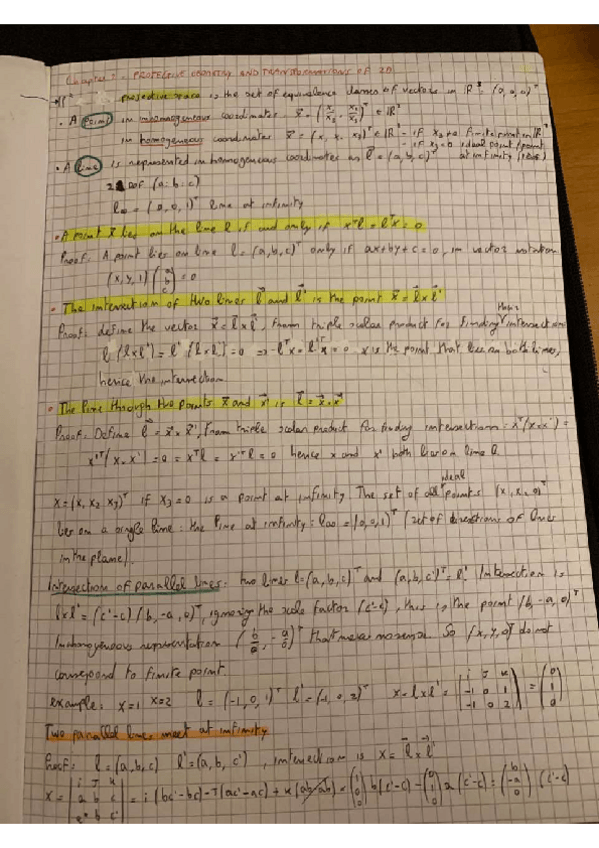 Chapter 1: PROJECTIVE GEOMETRY AND TRANSFORMATIONS OF 2D
projective space is the set of equivalence classes of vectors in ℝ³ - (0,0,0)ᵀ
• A point in inhomogeneous coordinates x⃗ = (x₁/x₃, x₂/x₃)ᵀ ∈ ℝ²
in homogeneous coordinates x⃗ = (x₁ x₂ x₃)ᵀ ∈ ℝ³ - if x₃≠0 finite point in ℝ²
- if x₃=0 ideal point/point
• A line is represented in homogeneous coordinates as l⃗ = (a,b,c)ᵀ at infinity
2 DOF (a:b:c)
l∞ = (0,0,1)ᵀ line at infinity
• A point x⃗ lies on the line l if and only if xᵀl = lᵀx = 0
Proof: A point lies on line l = (a,b,c)ᵀ only if ax+by+c=0, in vector notation
(x,y,1) (a b c) = 0
• The intersection of two lines l⃗ and l⃗' is the point x⃗ = l⃗ x l⃗'
Proof: define the vector x⃗ = l⃗ x l⃗', from triple scalar product for finding intersection:
l (l x l') = l' (l x l') = 0 => lᵀx = l'ᵀx = 0 x is the point that lies on both lines,
hence the intersection
• The line through the points x⃗ and x⃗' is l⃗ = x⃗ x x⃗'
Proof: Define l⃗ = x⃗ x x⃗', from triple scalar product for finding intersection: xᵀ(x x x') =
x'ᵀ(x x x') = 0 = xᵀl = x'ᵀl = 0 hence x and x' both lies on line l.
ideal
x = (x₁ x₂ x₃)ᵀ if x₃=0 is a point at infinity. The set of all points (x₁, x₂, 0)ᵀ
lies on a single line: the line at infinity: l∞ = (0,0,1)ᵀ (set of directions of lines
in the plane).
Intersections of parallel lines: two lines l=(a,b,c)ᵀ and (a,b,c')ᵀ = l'. Intersection is
l x l' = (c'-c)(b,-a,0)ᵀ, ignoring the scale factor (c'-c), this is the point (b,-a,0)ᵀ
Inhomogeneous representation (b/0, -a/0)ᵀ that makes no sense. So (x,y,0)ᵀ do not
correspond to finite point.
example: x=1 x=2 l = (-1,0,1)ᵀ l' = (-1,0,2)ᵀ x = l x l' = |i J K -1 0 1 -1 0 2| = (0 1 0)
Two parallel lines meet at infinity
Proof: l = (a,b,c) l' = (a,b,c'), intersection is x = l⃗ x l⃗'
x = |i J K a b c a b c'| = i(bc'-bc) - J(ac'-ac) + K(ab-ab) = (1 0 0) b(c'-c) - (0 1 0) a(c'-c) = (b -a 0) (c'-c)